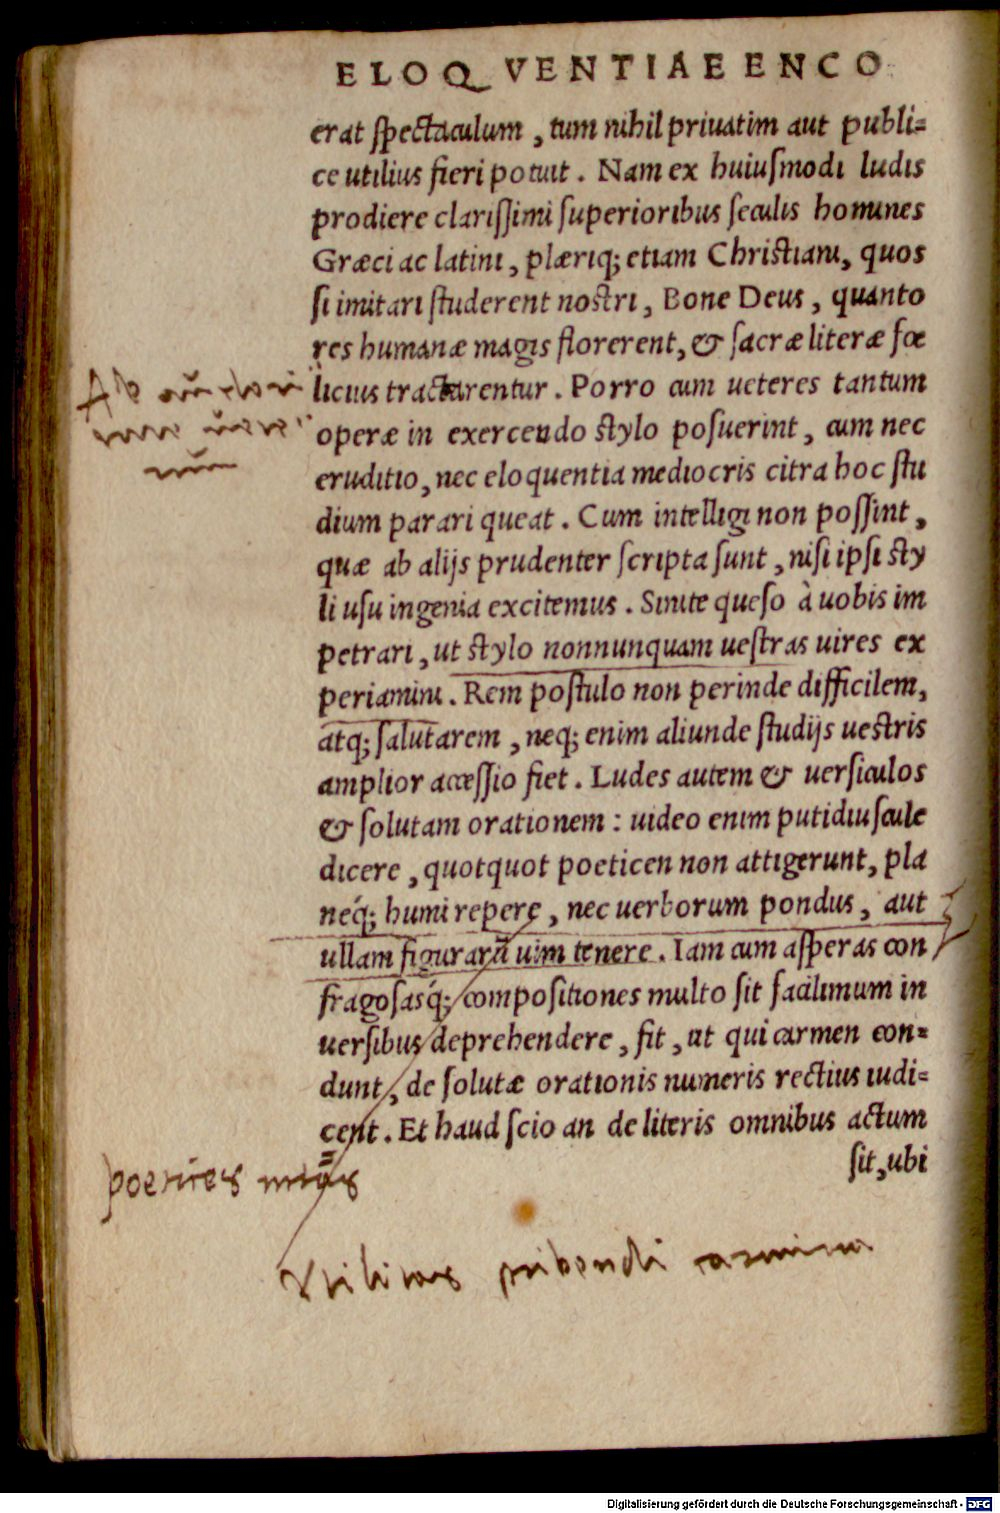 ELOQVENTIAE ENCO
erat ſpectaculum, tum nihil priuatim aut publi=
ce utilius fieri potuit. Nam ex huiuſmodi ludis
prodiere clariſſimi ſuperioribus ſeculis homines
Græci ac latini, plæriq; etiam Chriſtiani, quos
ſi imitari ſtuderent noſtri, Bone Deus, quanto
res humanæ magis florerent, & ſacræ literæ fœ
licius tractarentur. Porro cum ueteres tantum
operæ in exercendo ſtylo poſuerint, cum nec
eruditio, nec eloquentia mediocris citra hoc ſtu
dium parari queat. Cum intelligi non poſſint,
quæ ab alijs prudenter ſcripta ſunt, niſi ipſi ſty
li uſu ingenia excitemus. Sinite queſo à uobis im
petrari, ut ſtylo nonnunquam ueſtras uires ex
periamini. Rem poſtulo non perinde difficilem,
atq; ſalutarem, neq; enim aliunde ſtudijs ueſtris
amplior acceſſio fiet. Ludes autem & uerſiculos
& ſolutam orationem: uideo enim putidiuſcule
dicere, quotquot poeticen non attigerunt, pla
neq́; humi repere, nec uerborum pondus, aut
ullam figurarū uim tenere. Iam cum aſperas con
fragoſasq́; compoſitiones multo ſit facilimum in
uerſibus deprehendere, fit, ut qui carmen con=
dunt, de ſolutæ orationis numeris rectius iudi=
cent. Et haud ſcio an de literis omnibus actum
ſit, ubi
poetices
Vtilitas ſcribendi carmina
Digitalisierung gefördert durch die Deutsche Forschungsgemeinschaft - DFG